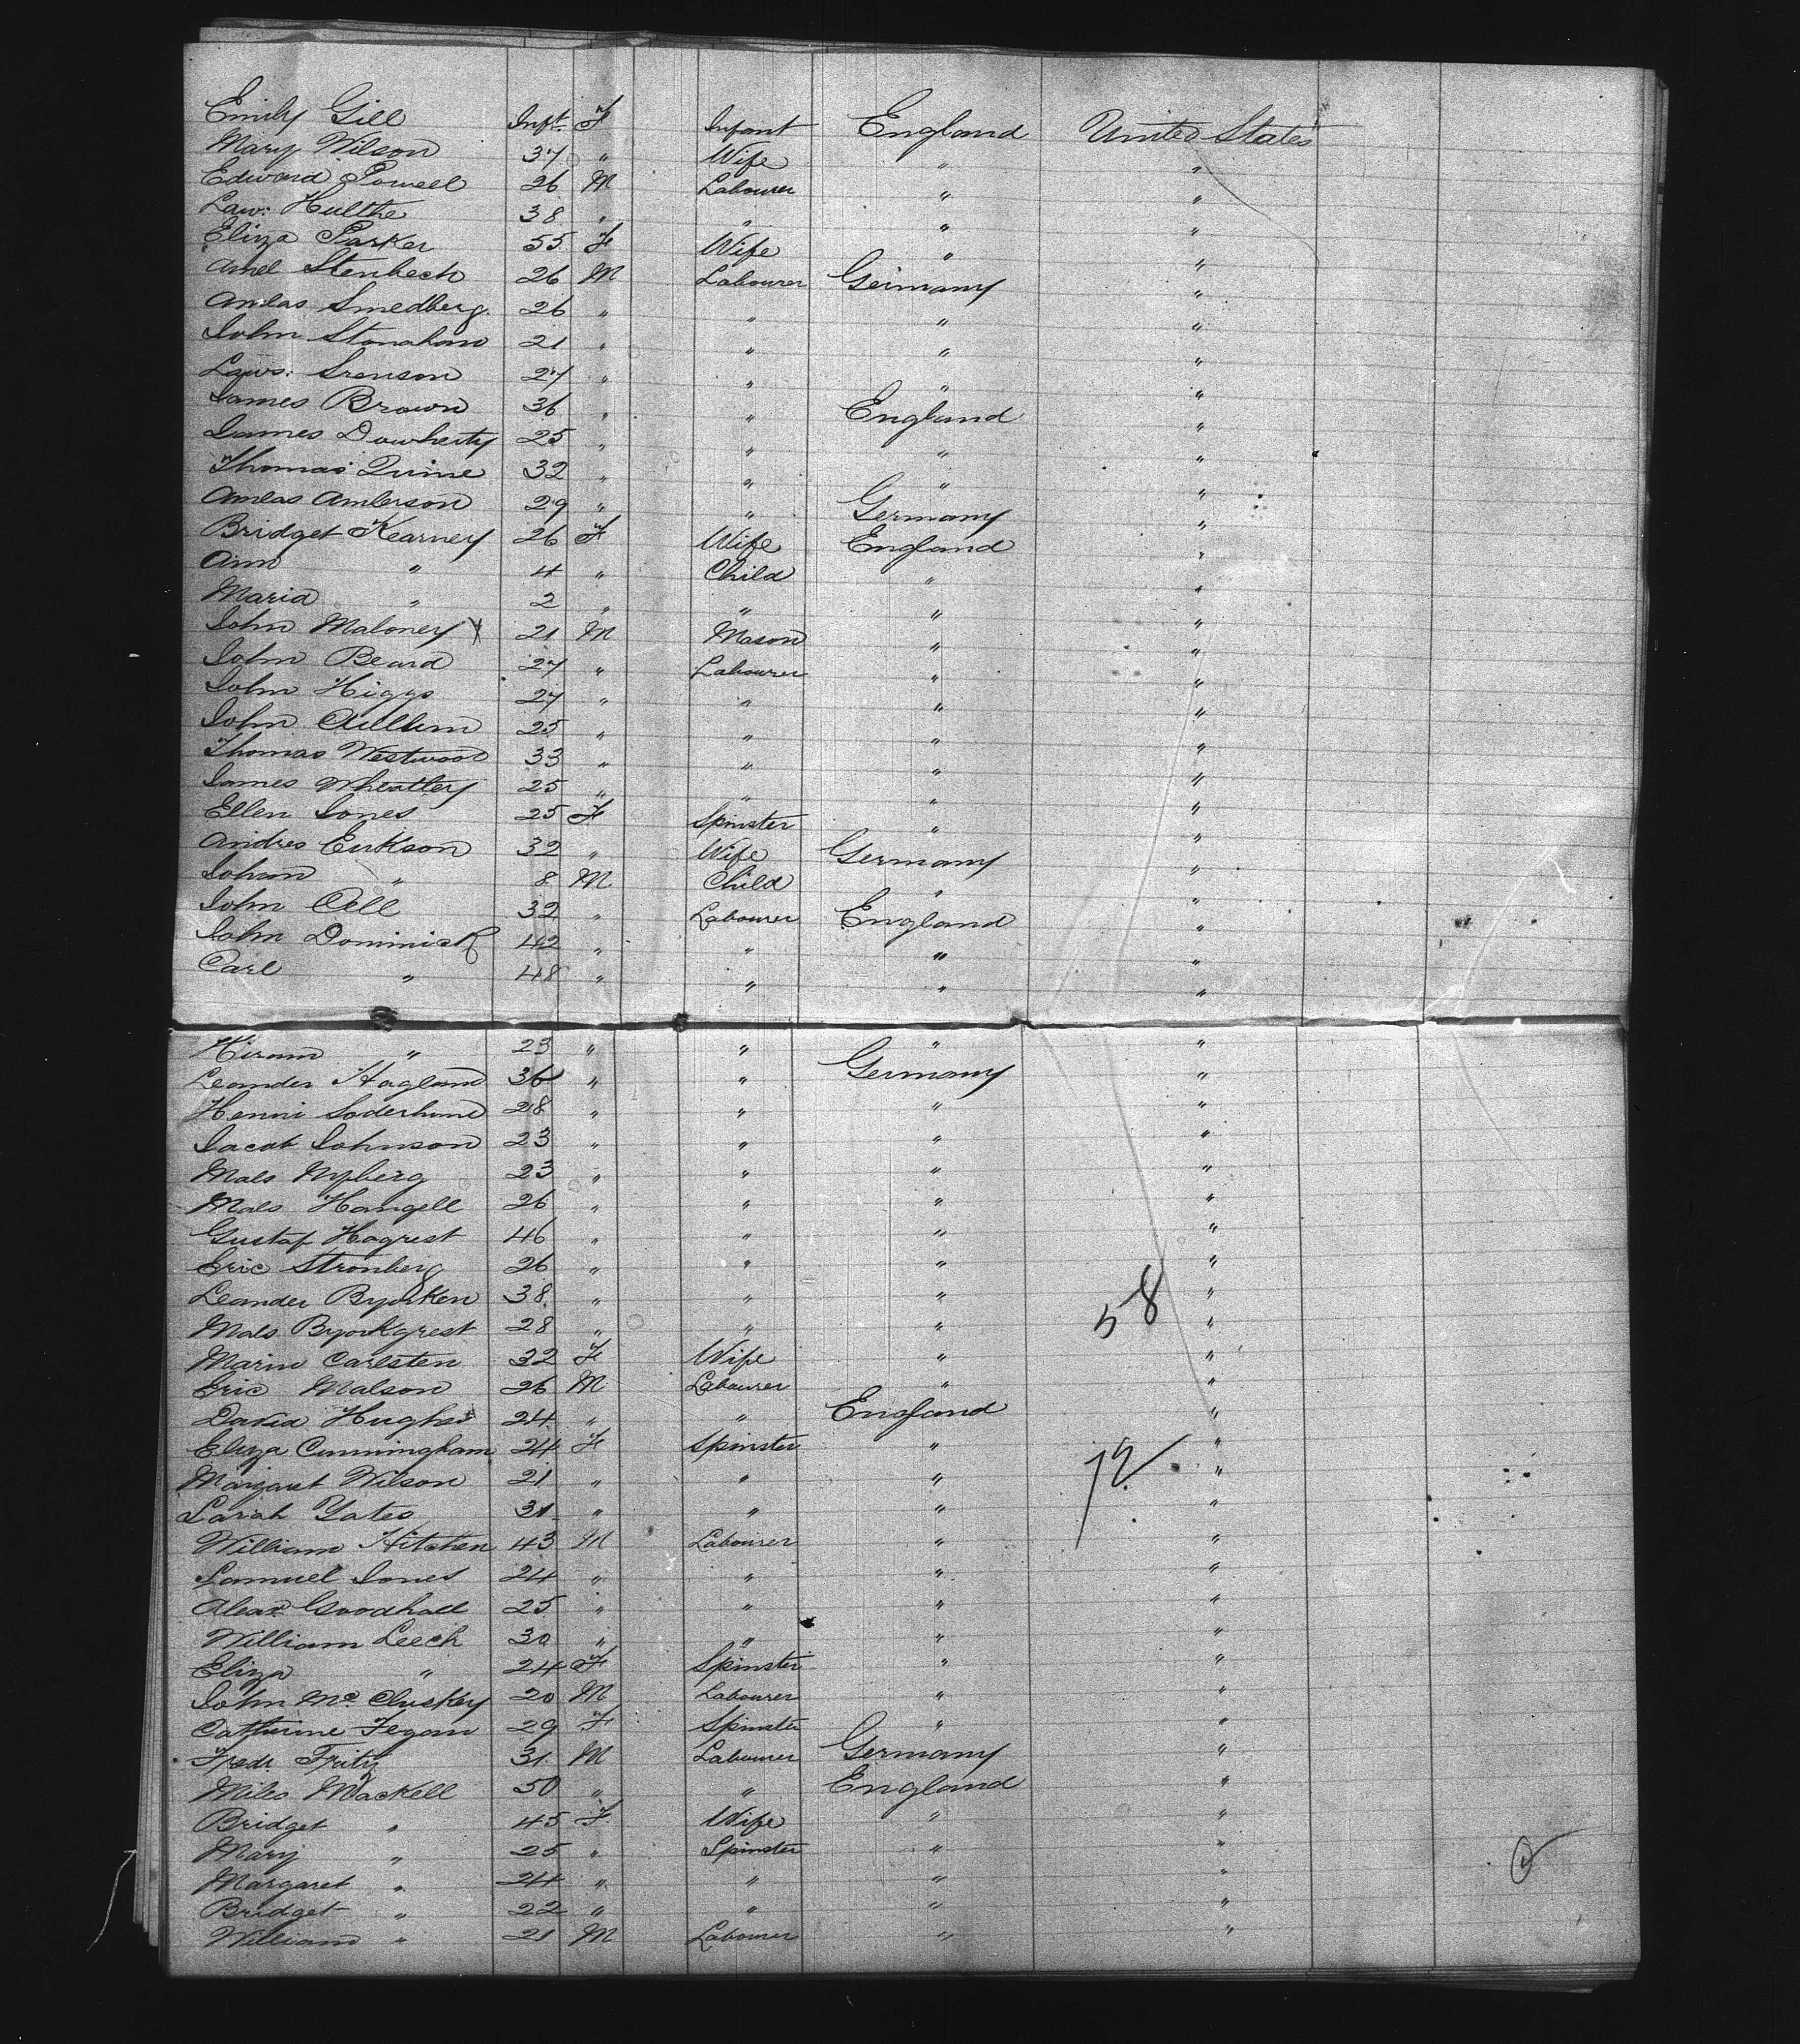 Emily Gill Inft. F Infant England United States
Mary Wilson 37 " Wife " "
Edward Powell 26 M Labourer " "
Law: Hulthe 38 " " " "
Eliza Parker 55 F Wife " "
Amel Stenbech 26 M Labourer Germany "
Andas Smedberg 26 " " " "
John 21 " " " "
Laws: Srenson 27 " " " "
James Brown 36 " " England "
James Dowherty 25 " " " "
Thomas Quine 32 " " " "
Andas Anderson 29 " " Germany "
Bridget Kearney 26 F Wife England "
Ann " 4 " Child " "
Maria " 2 " " " "
John Maloney 21 M Mason " "
John Beard 27 " Labourer " "
John Higgs 27 " " " "
John Cullum 25 " " " "
Thomas Westwood 33 " " " "
James Wheatley 25 " " " "
Ellen Jones 25 F Spinster " "
Andres Erikson 32 " Wife Germany "
Johan " 8 M Child " "
John 32 " Labourer England "
John Dominick 42 " " " "
Carl " 48 " " " "
Hiram " 23 " " " "
Leander Hagland 36 " " Germany "
Henri Soderlund 28 " " " "
Jacob Johnson 23 " " " "
Mals Nyberg 23 " " " "
Mals Hangell 26 " " " "
Gustaf Hagrest 46 " " " "
Eric Stronberg 26 " " " "
Leander Byorken 38 " " " "
58
Mals Byorkgrest 28 " " " "
Marin Carlsten 32 F Wife " "
Eric Malson 26 M Labourer " "
David Hughes 24 " " England "
Eliza Cunningham 24 F Spinster " "
72
Margaret Wilson 21 " " " "
Sarah Yates 31 " " " "
William Hitchen 43 M Labourer " "
Samuel Jones 24 " " " "
Alexr. Goodhall 25 " " " "
William Leech 30 " " " "
Eliza " 24 F Spinster " "
John Mc. Cluskey 20 M Labourer " "
Catherine Fegan 29 F Spinster " "
Fredr. Fritz 31 M Labourer Germany "
Miles Mackell 50 " " England "
Bridget " 45 F Wife " "
Mary " 25 " Spinster " "
Margaret " 24 " " " "
Bridget " 22 " " " "
William " 21 M Labourer " "